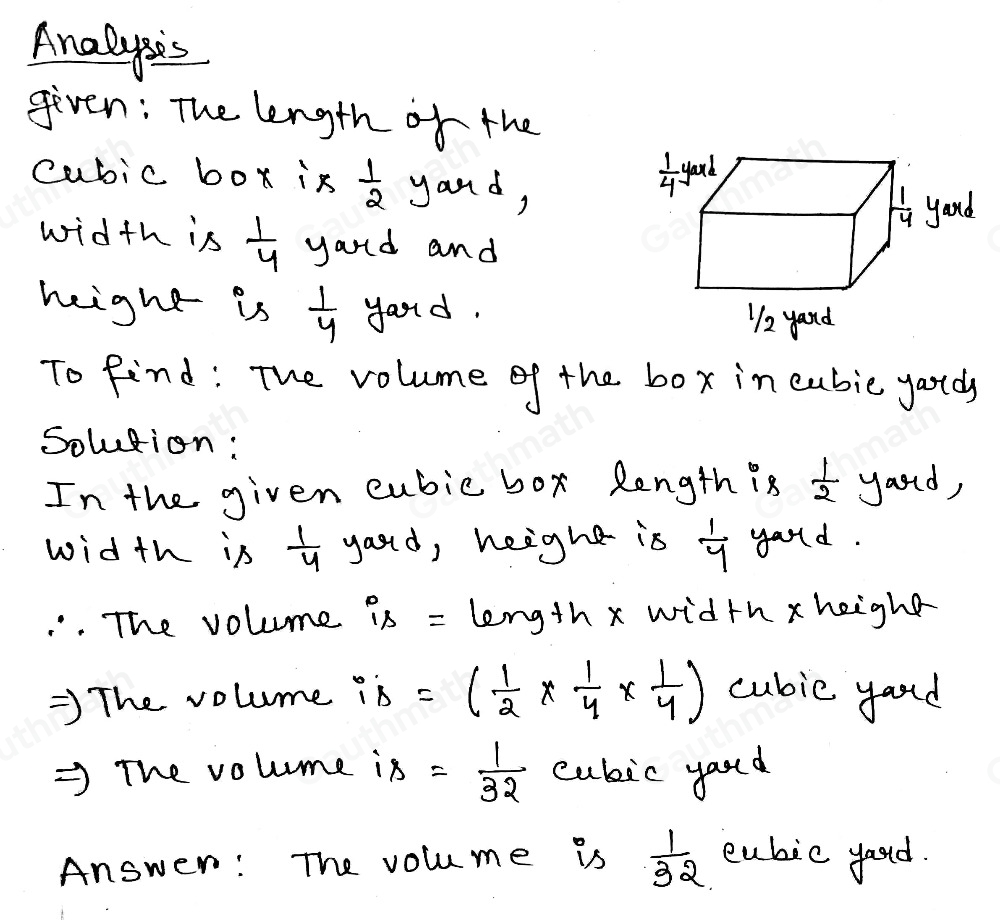 Analysis
given: The length of the
cubic box is 1/2 yard,
width is 1/4 yard and
height is 1/4 yard.
1/4 yard
1/4 yard
1/2 yard
To find: The volume of the box in cubic yards
Solution:
In the given cubic box length is 1/2 yard,
width is 1/4 yard, height is 1/4 yard.
∴ The volume is = length × width × height
⇒ The volume is = (1/2 × 1/4 × 1/4) cubic yard
⇒ The volume is = 1/32 cubic yard
Answer: The volume is 1/32 cubic yard.
Gauthmath
Gauthmath
Gauthmath
Gauthmath
Gauthmath
Gauthmath
Gauthmath
Gauthmath
Gauthmath